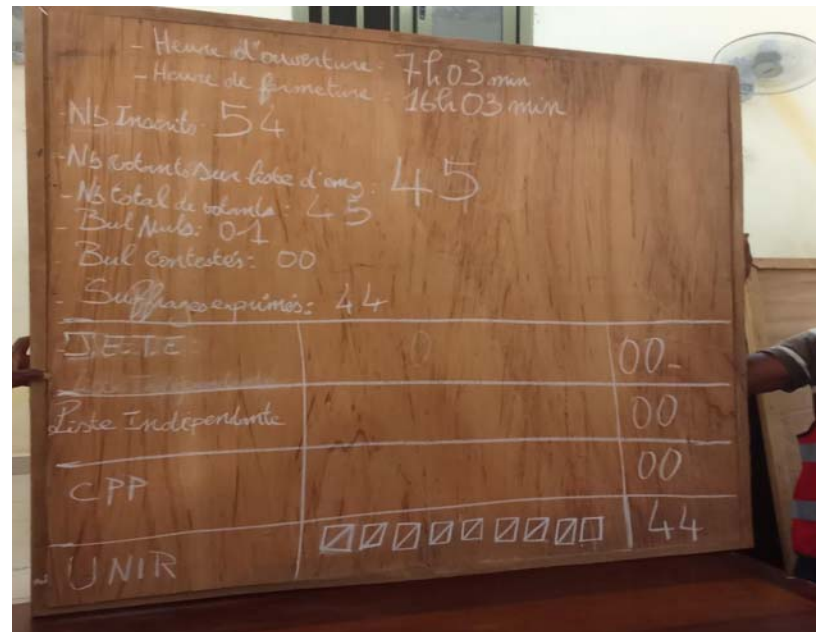 - Heure d'ouverture : 7h03 min
- Heure de fermeture : 16h03 min
- Nb Inscrits : 54
- Nb votants sur liste d'émg : 45
- Nb total de votants : 45
- Bul Nuls : 01
- Bul contestés : 00
- Suffrages exprimés : 44
00 -
Liste Indépendante 00
CPP 00
UNIR 44